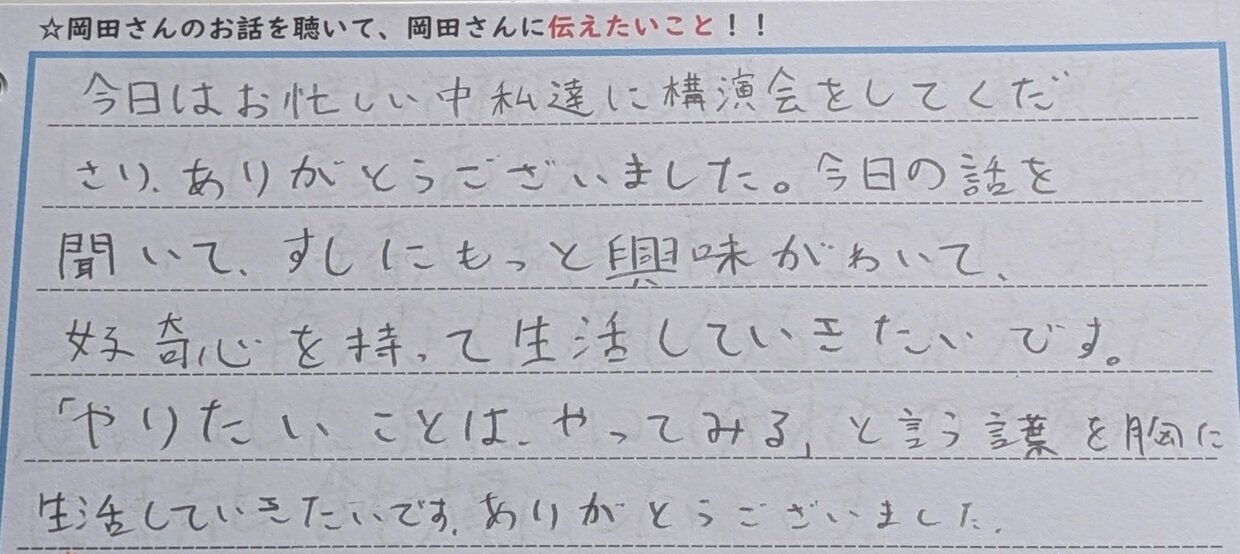 ☆岡田さんのお話を聴いて、岡田さんに伝えたいこと！！
今日はお忙しい中私達に構演会をしてくだ
さり、ありがとうございました。今日の話を
聞いて、すしにもっと興味がわいて、
好奇心を持って生活していきたいです。
「やりたいことは、やってみる」と言う言葉を胸に
生活していきたいです。ありがとうございました。